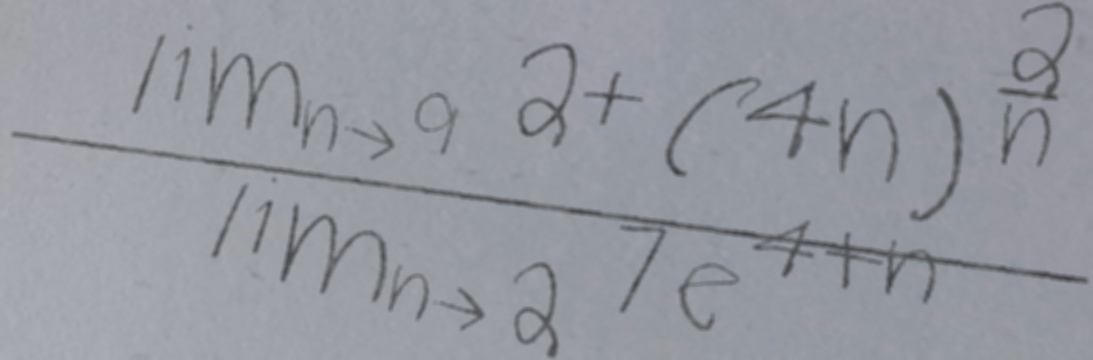 lim n→9 2+(4n)^(2/n)
lim n→2 7e^(4+n)